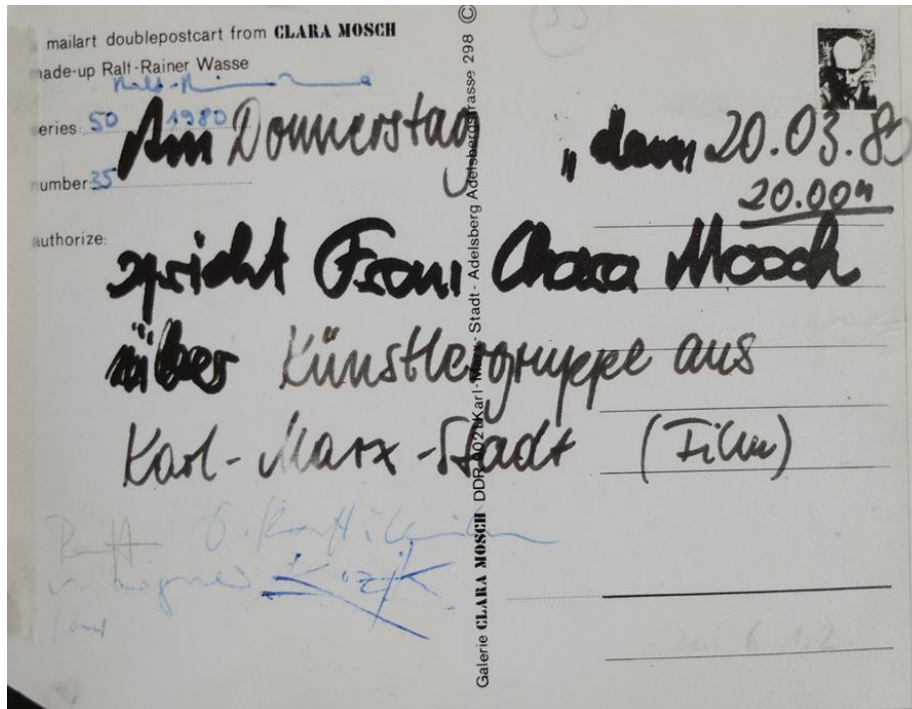 mailart doublepostcart from CLARA MOSCH
made-up Ralf-Rainer Wasse
series: 50 1980
number 35
authorize:
Am Donnerstag
"dem 20.03.80
20.00"
spricht Frau Clara Mosch
über Künstlergruppe aus
Karl-Marx-Stadt (Film)
Kozik
Galerie CLARA MOSCH DDR 9021 Karl-Marx-Stadt - Adelsberg Adelsbergstrasse 298 ©